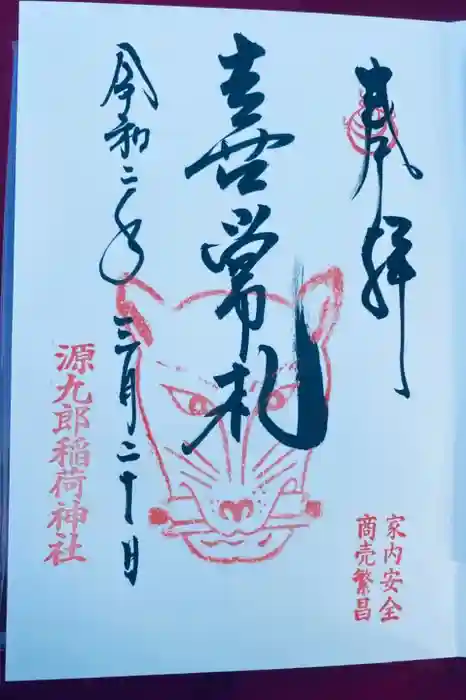 奉拝
家内安全
商売繁昌
喜常札
令和二年三月二十日
源九郎稲荷神社